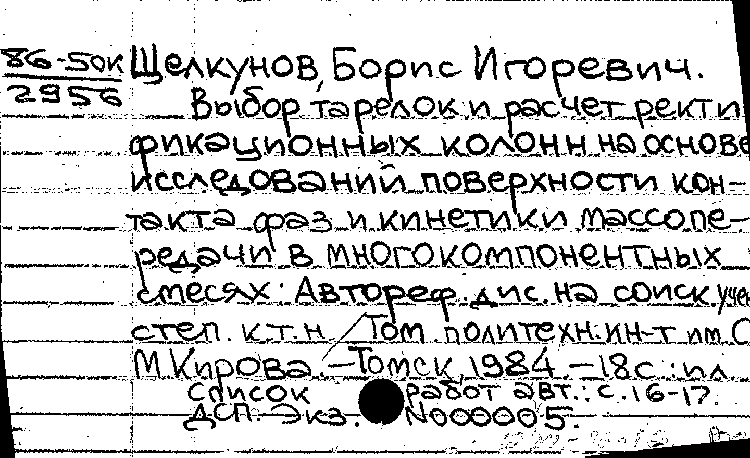 86-50к Щелкунов, Борис Игоревич.
2956 Выбор тарелок и расчет ректи
фикационных колонн на основе
исследований поверхности кон-
такта фаз и кинетики массопе-
редачи в многокомпонентных
смесях: Автореф. дис. на соиск. учен
степ. к.т.н. / Том. политехн. ин-т им. С
М. Кирова. - Томск, 1984. - 18с.: ил
Список работ авт.: с. 16-17.
ДСП. Экз. N000005.